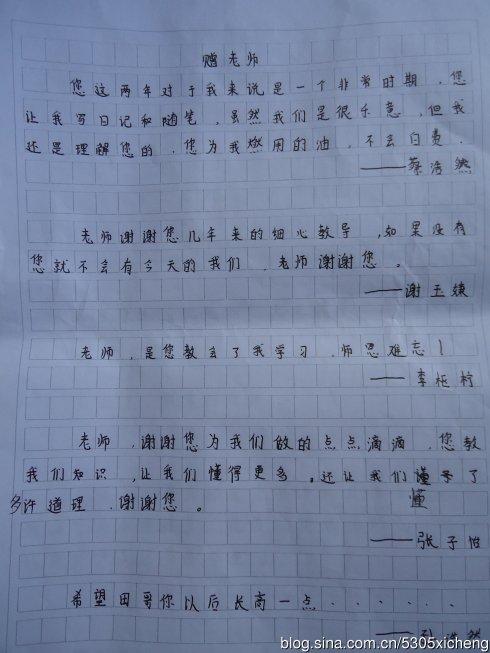 赠老师
您这两年对于我来说是一个非常时期,您
让我写日记和随笔,虽然我们是很乐意,但我
还是理解您的,您为我燃用的油,不会白费.
——蔡浩然
老师谢谢您几年来的细心教导,如果没有
您就不会有今天的我们,老师谢谢您。
——谢玉婕
老师,是您教会了我学习,师恩难忘!
——李柜柠
老师,谢谢您为我们做的点点滴滴,您教
我们知识,让我们懂得更多。还让我们懂予了
懂
多许道理,谢谢您。
——张子怡
希望田哥你以后长高一点......
浩然
blog.sina.com.cn/5305xicheng